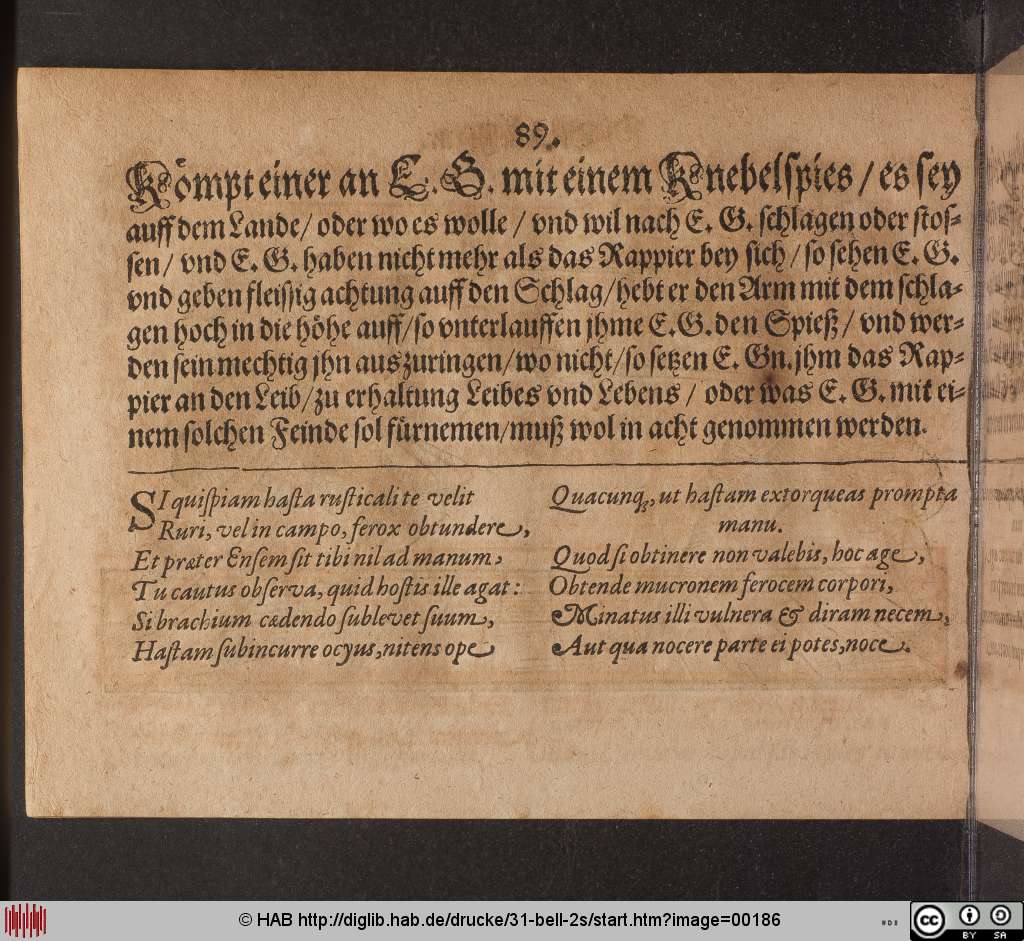 89.
Kömpt einer an E. G. mit einem Knebelspies / es sey
auff dem Lande / oder wo es wolle / vnd wil nach E. G. schlagen oder stos-
sen / vnd E. G. haben nicht mehr als das Rappier bey sich / so sehen E. G.
vnd geben fleissig achtung auff den Schlag / hebt er den Arm mit dem schla-
gen hoch in die höhe auff / so vnterlauffen jhme E. G. den Spieß / vnd wer-
den sein mechtig jhn auszuringen / wo nicht / so setzen E. Gn. jhm das Rap-
pier an den Leib / zu erhaltung Leibes vnd Lebens / oder was E. G. mit ei-
nem solchen Feinde sol fürnemen / muß wol in acht genommen werden.
SI quispiam hasta rusticali te velit
Ruri, vel in campo, ferox obtundere,
Et præter Ensem sit tibi nil ad manum,
Tu cautus observa, quid hostis ille agat:
Si brachium cædendo sublevet suum,
Hastam subincurre ocyus, nitens ope
Quacunq;, ut hastam extorqueas prompta
manu.
Quod si obtinere non valebis, hoc age,
Obtende mucronem ferocem corpori,
Minatus illi vulnera & diram necem,
Aut qua nocere parte ei potes, noce.
© HAB http://diglib.hab.de/drucke/31-bell-2s/start.htm?image=00186
cc BY SA